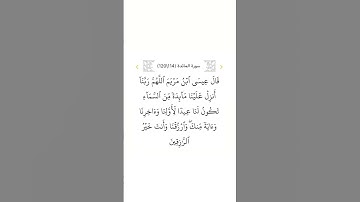 سورة المائدة (120\114)
قَالَ عِيسَى ٱبْنُ مَرْيَمَ ٱللَّهُمَّ رَبَّنَآ
أَنزِلْ عَلَيْنَا مَآئِدَةً مِّنَ ٱلسَّمَآءِ
تَكُونُ لَنَا عِيدًا لِّأَوَّلِنَا وَءَاخِرِنَا
وَءَايَةً مِّنكَ ۖ وَٱرْزُقْنَا وَأَنتَ خَيْرُ
ٱلرَّٰزِقِينَ